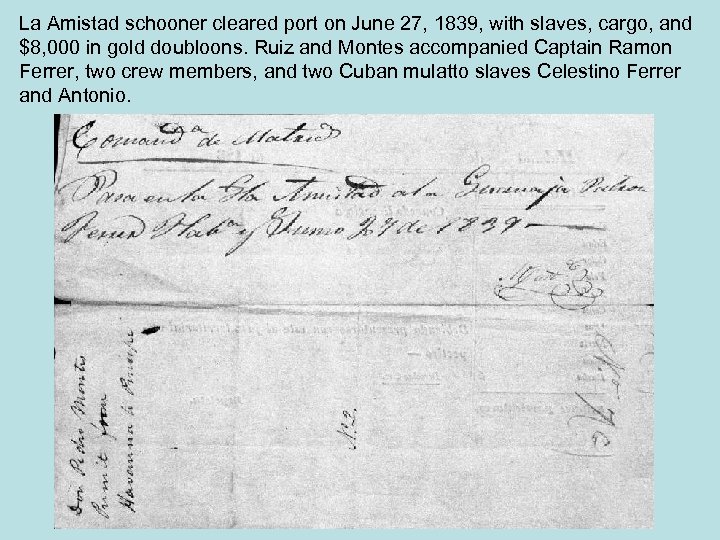 La Amistad schooner cleared port on June 27, 1839, with slaves, cargo, and
$8, 000 in gold doubloons. Ruiz and Montes accompanied Captain Ramon
Ferrer, two crew members, and two Cuban mulatto slaves Celestino Ferrer
and Antonio.
Comand.a de Matric
Pasa en la Gta Amistad a la Guanaja Patron
Ferrer Haba y Junio 27 de 1839
Don Pedro Montes
Permit from
Havanna á Principe
No 2.